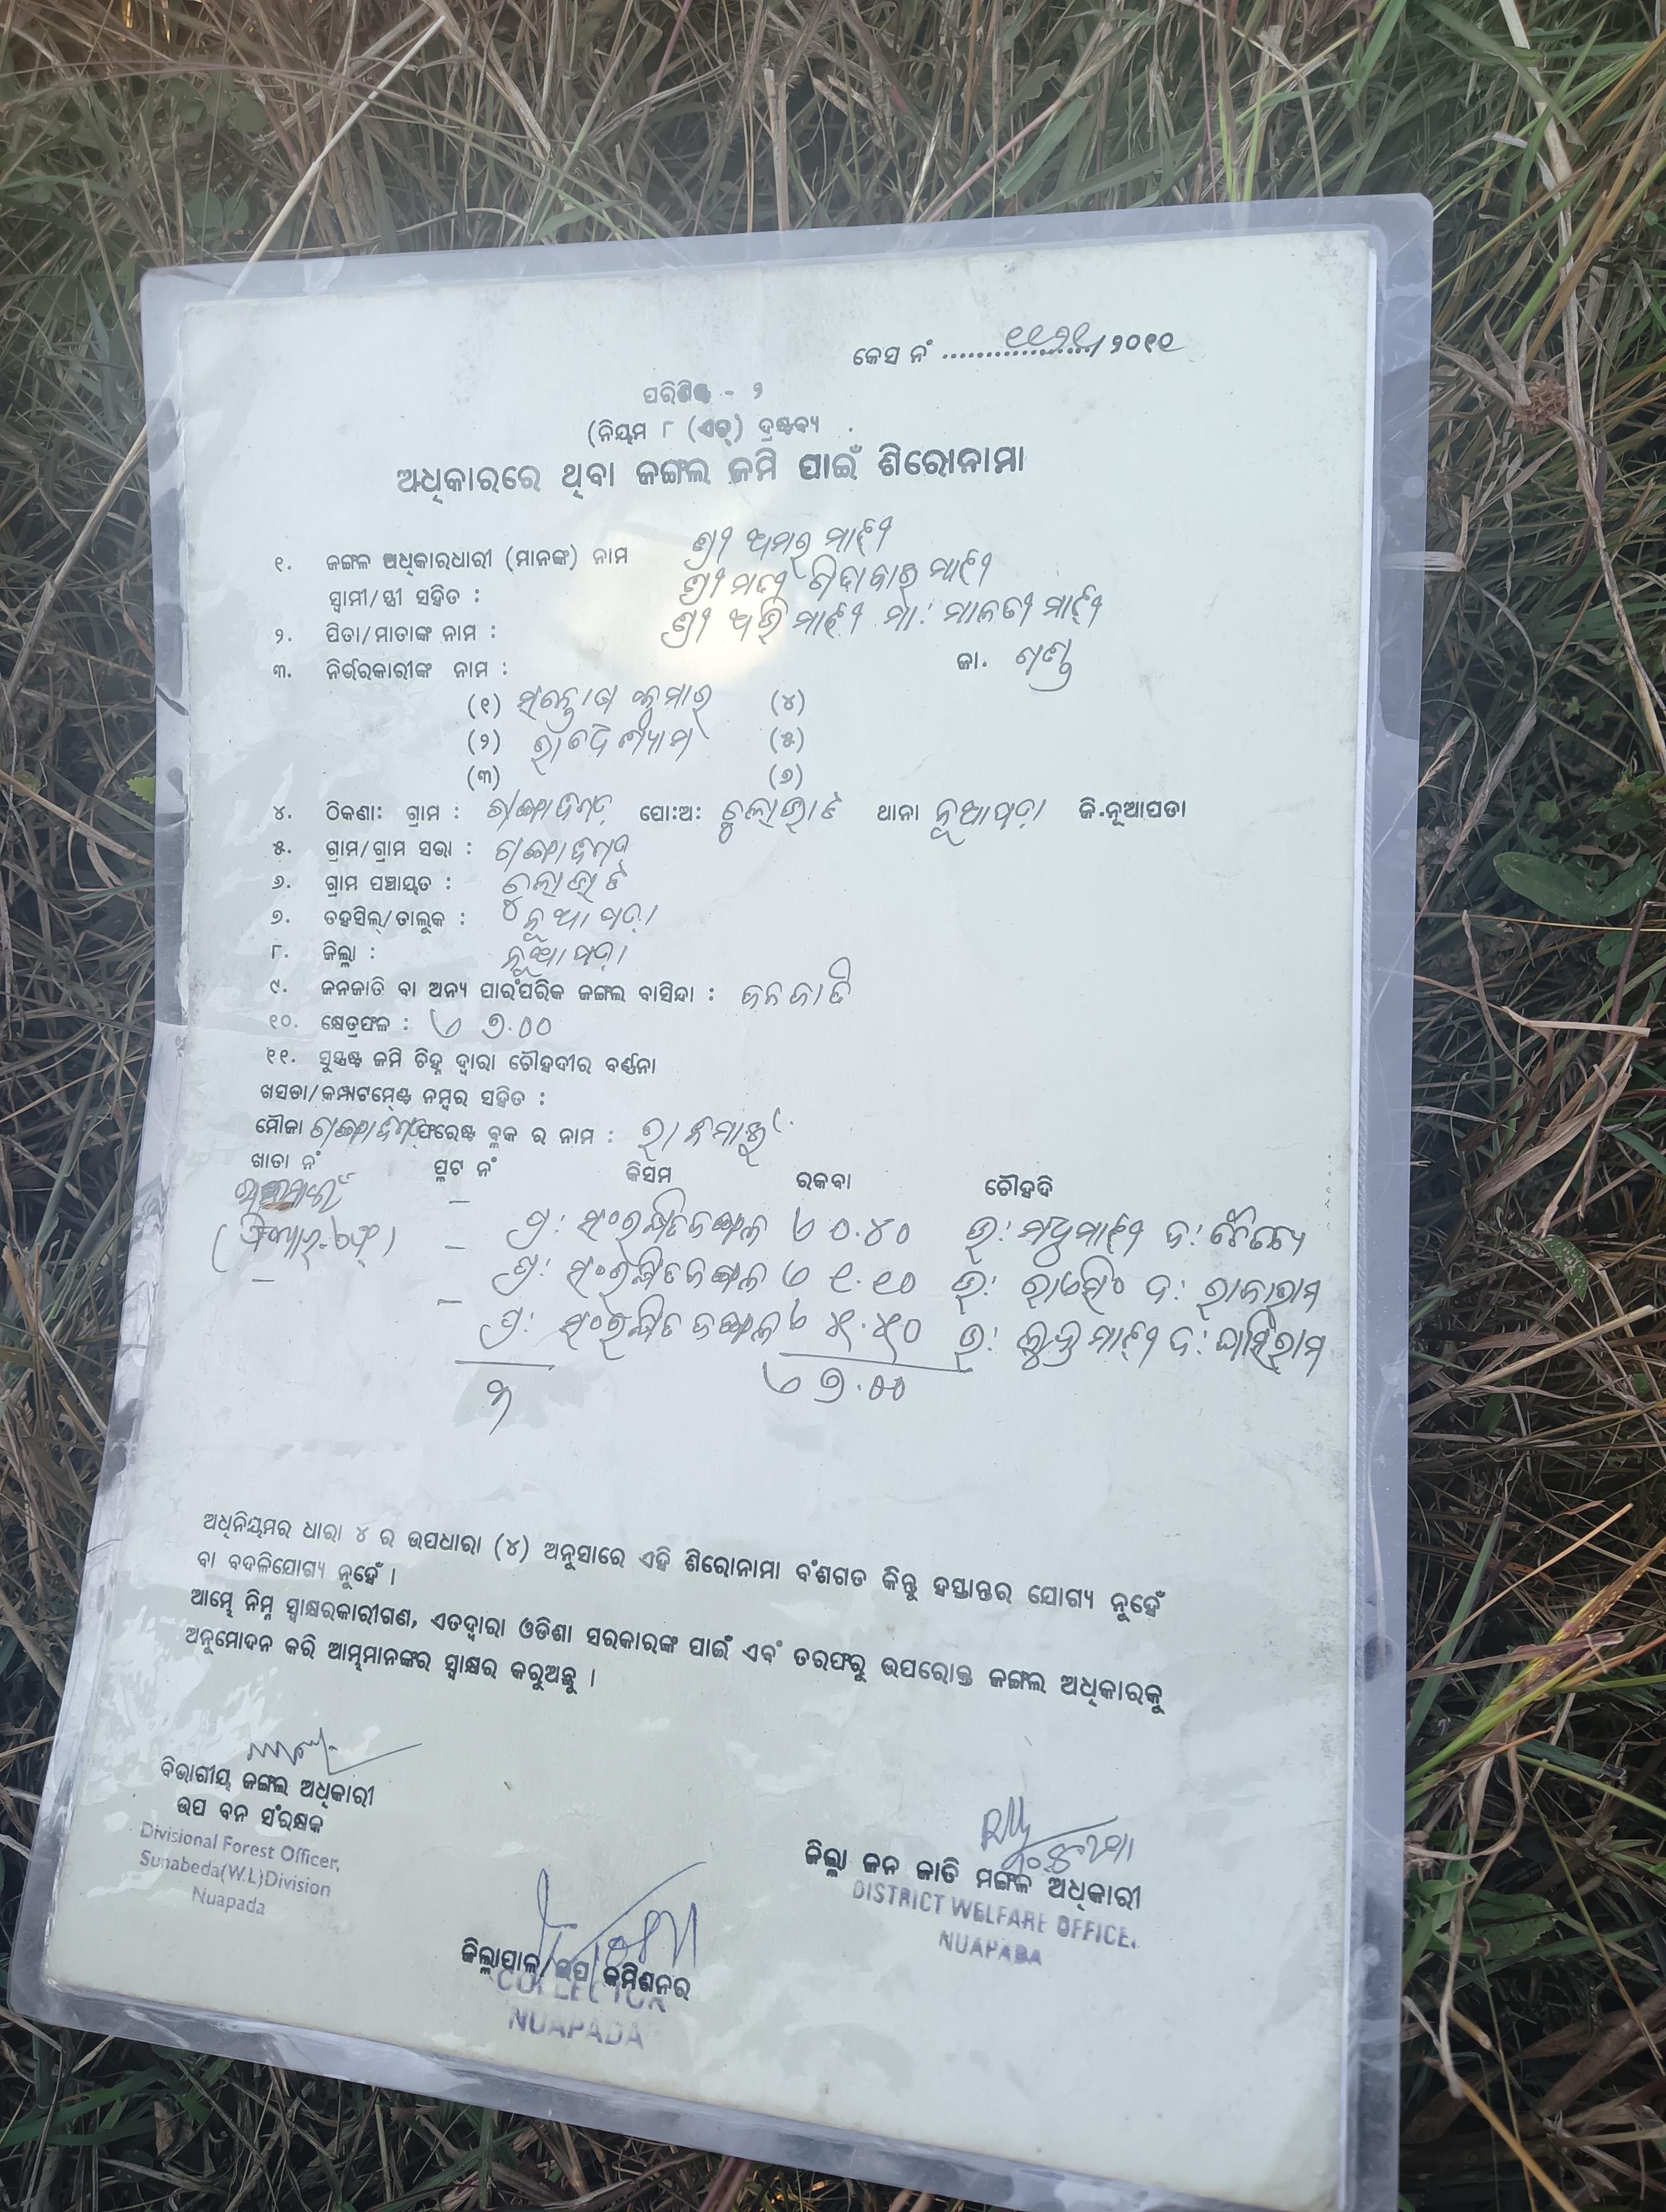 କେସ ନଂ ୧୧୨୧/୨୦୧୧
ପରିଶିଷ୍ଟ - ୨
(ନିୟମ ୮ (ଏଚ୍) ଦ୍ରଷ୍ଟବ୍ୟ
ଅଧିକାରରେ ଥିବା ଜଙ୍ଗଲ ଜମି ପାଇଁ ଶିରୋନାମା
୧. ଜଙ୍ଗଲ ଅଧିକାରଧାରୀ (ମାନଙ୍କ) ନାମ ଶ୍ରୀ ଅମର ମାଝୀ
ସ୍ୱାମୀ/ସ୍ତ୍ରୀ ସହିତ : ଶ୍ରୀମତୀ ମାଝୀ
୨. ପିତା/ମାତାଙ୍କ ନାମ : ଶ୍ରୀ ଅଭି ମାଝୀ ମା: ମାଳତୀ ମାଝୀ
୩. ନିର୍ଭରକାରୀଙ୍କ ନାମ : ଜା. ଗଣ୍ଡ
(୧) ସନ୍ତୋଷ କୁମାର (୪)
(୨) (୫)
(୩) (୬)
୪. ଠିକଣା: ଗ୍ରାମ : ପୋ:ଅ: ଥାନା ନୂଆପଡ଼ା ଜି.ନୂଆପଡା
୫. ଗ୍ରାମ/ଗ୍ରାମ ସଭା :
୬. ଗ୍ରାମ ପଞ୍ଚାୟତ :
୭. ତହସିଲ୍/ତାଲୁକ : ନୂଆପଡ଼ା
୮. ଜିଲ୍ଲା : ନୂଆପଡ଼ା
୯. ଜନଜାତି ବା ଅନ୍ୟ ପାରଂପରିକ ଜଙ୍ଗଲ ବାସିନ୍ଦା : ଜନଜାତି
୧୦. କ୍ଷେତ୍ରଫଳ : ୭.୦୦
୧୧. ସୁସ୍ପଷ୍ଟ ଜମି ଚିହ୍ନ ଦ୍ୱାରା ଚୌହଦୀର ବର୍ଣ୍ଣନା
ଖସଡା/କମ୍ପାଟମେଣ୍ଟ ନମ୍ବର ସହିତ :
ମୌଜା ଫରେଷ୍ଟ ବ୍ଲକ ର ନାମ :
ଖାତା ନଂ ପ୍ଲଟ ନଂ କିସମ ରକବା ଚୌହଦି
ପ୍ର: ସଂରକ୍ଷିତ ଜଙ୍ଗଲ ୦.୪୦ ଉ: ମାଝୀ ଦ:
ପ୍ର: ସଂରକ୍ଷିତ ଜଙ୍ଗଲ ୧.୧୦ ଉ: ରାଏସିଂ ଦ: ରାଜାରାମ
ପ୍ର: ସଂରକ୍ଷିତ ଜଙ୍ଗଲ ୫.୫୦ ଉ: ମାଝୀ ଦ: ଘାସିରାମ
୩ ୭.୦୦
ଅଧିନିୟମର ଧାରା ୪ ର ଉପଧାରା (୪) ଅନୁସାରେ ଏହି ଶିରୋନାମା ବଂଶଗତ କିନ୍ତୁ ହସ୍ତାନ୍ତର ଯୋଗ୍ୟ ନୁହେଁ
ବା ବଦଳିଯୋଗ୍ୟ ନୁହେଁ ।
ଆମ୍ଭେ ନିମ୍ନ ସ୍ୱାକ୍ଷରକାରୀଗଣ, ଏତଦ୍ୱାରା ଓଡିଶା ସରକାରଙ୍କ ପାଇଁ ଏବଂ ତରଫରୁ ଉପରୋକ୍ତ ଜଙ୍ଗଲ ଅଧିକାରକୁ
ଅନୁମୋଦନ କରି ଆମ୍ଭମାନଙ୍କର ସ୍ୱାକ୍ଷର କରୁଅଛୁ ।
ବିଭାଗୀୟ ଜଙ୍ଗଲ ଅଧିକାରୀ
ଉପ ବନ ସଂରକ୍ଷକ
Divisional Forest Officer,
Sunabeda(W.L)Division
Nuapada
ଜିଲ୍ଲା ଜନ ଜାତି ମଙ୍ଗଳ ଅଧିକାରୀ
DISTRICT WELFARE OFFICE.
NUAPADA
ଜିଲ୍ଲାପାଳ/ଉପ କମିଶନର
COLLECTOR
NUAPADA